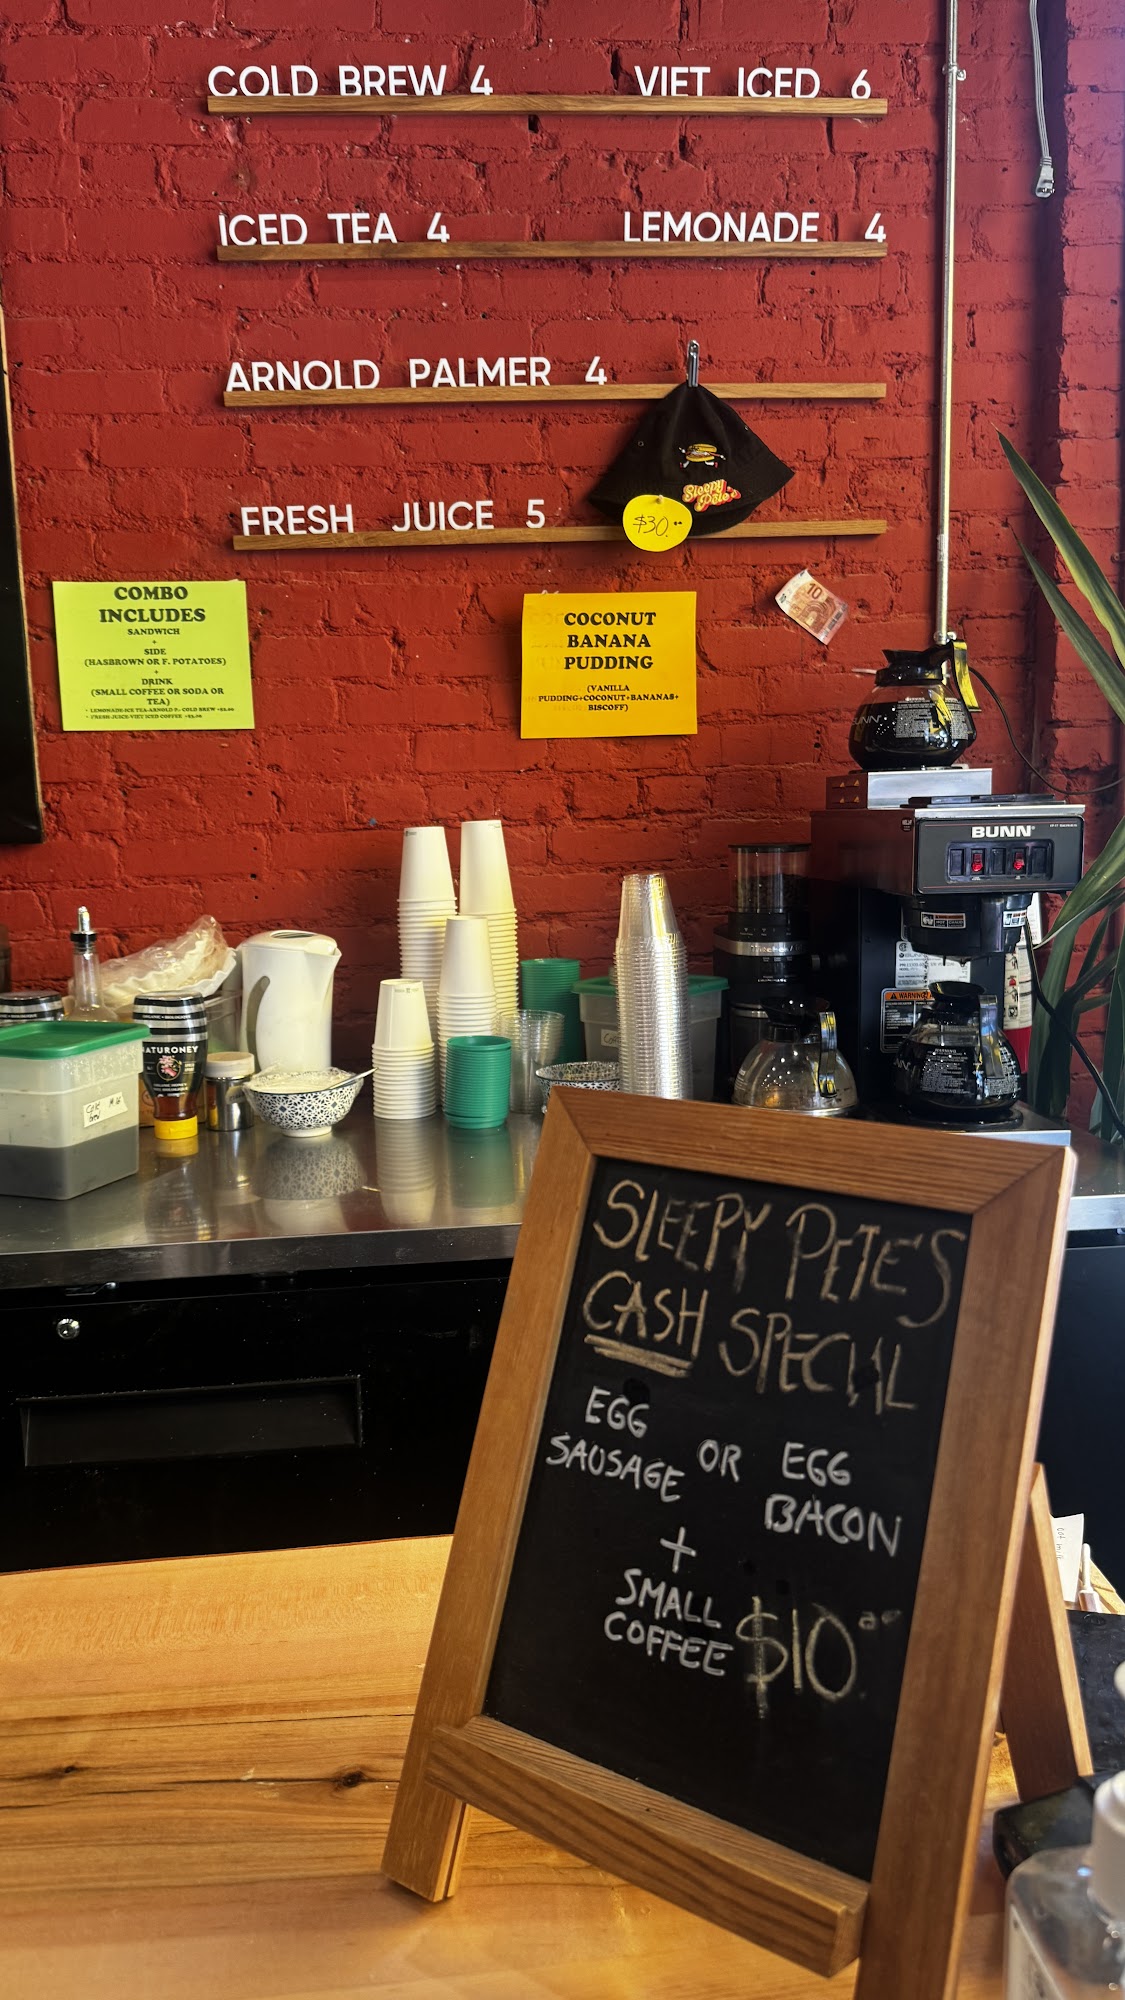 COLD BREW 4 VIET ICED 6
ICED TEA 4 LEMONADE 4
ARNOLD PALMER 4
FRESH JUICE 5
Sleepy
Pete's
$30.
COMBO
INCLUDES
SANDWICH
+
SIDE
(HASBROWN OR F. POTATOES)
+
DRINK
(SMALL COFFEE OR SODA OR
TEA)
• LEMONADE-ICE TEA-ARNOLD P.- COLD BREW +$2.00
• FRESH-JUICE-VIET ICED COFFEE +$3.00
COCONUT
BANANA
PUDDING
(VANILLA
PUDDING+COCONUT+BANANAS+
BISCOFF)
10
BUNN
BUNN
WARNING
NATURONEY
SLEEPY PETE'S
CASH SPECIAL
EGG
SAUSAGE OR EGG
BACON
+
SMALL
COFFEE $10.00